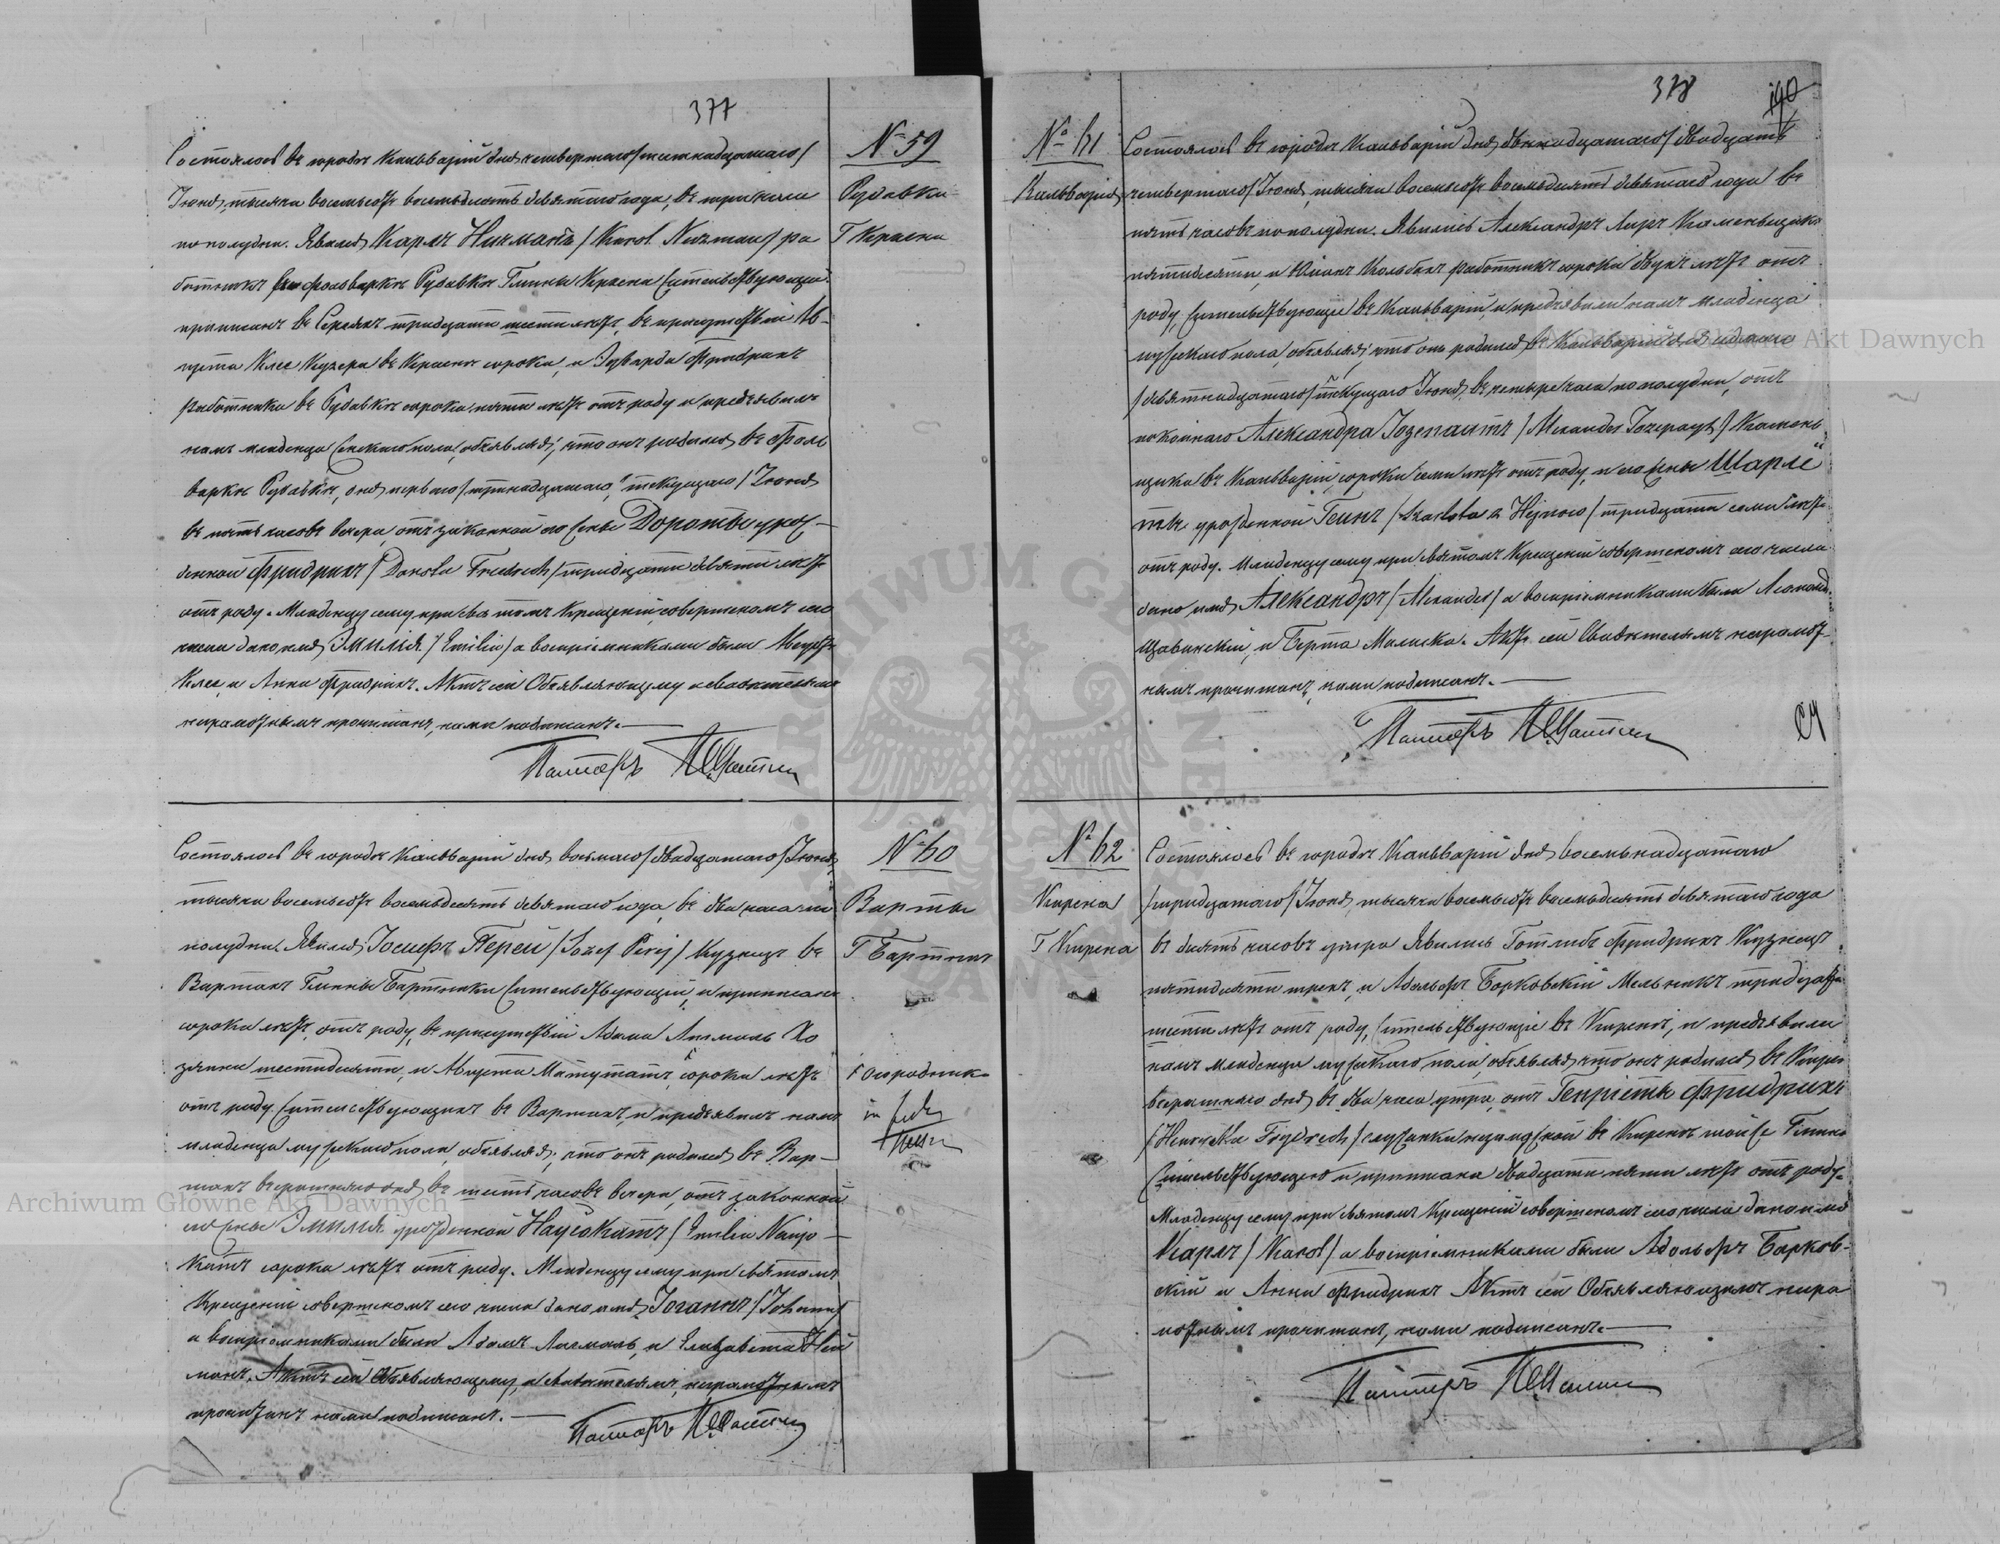 377
№ 59
Рудавка
Г. Красна
Состоялось въ городѣ Кальваріи дня четвертаго /шестнадцатаго/
Іюня, тысяча восемьсотъ восемьдесятъ девятаго года, въ три часа
по полудни. Явился Карлъ Ничманъ /Karol Niczman/ ра
ботникъ въ фольваркѣ Рудавкѣ Гмины Красна жительствующій
тридцати шести лѣтъ, въ присутствіи Ав-
густа Клее Кузнера въ Краснѣ сорока, и Эдуарда Фридрихъ
работника въ Рудавкѣ сорока пяти лѣтъ отъ роду и предъявилъ
намъ младенца женскаго пола, объявляя, что онъ родился въ фоль
варкѣ Рудавкѣ, дня перваго /тринадцатаго/ текущаго Іюня
въ пять часовъ вечера, отъ законной его жены Доротеы урож-
денной Фридрихъ /Dorota Friedrich/ тридцати девяти лѣтъ
отъ роду. Младенцу сему при святомъ Крещеніи, совершенномъ сего
числа дано имя Эмилія /Emilia/ а воспріемниками были Августъ
Клее и Анна Фридрихъ. Актъ сей Объявляющему и свидѣтелямъ
неграмотнымъ прочитанъ, нами подписанъ.—
Пасторъ
№ 60
Варты
Г. Бартники
Состоялось въ городѣ Кальваріи дня восьмаго /двадцатаго/ Іюня,
тысяча восемьсотъ восемьдесятъ девятаго года, въ два часа по
полудни. Явился Іосифъ Перей /Józef Perej/ Кузнецъ въ
Вартахъ Гмины Бартники жительствующій,
сорока лѣтъ, отъ роду, въ присутствіи Адама Лисмань Хо
зяина шестидесяти, и Августа Матутатъ, сорока лѣтъ
огородникъ
in fidem
отъ роду, жительствующихъ въ Вартахъ, и предъявилъ намъ
младенца мужескаго пола, объявляя, что онъ родился въ Вар-
тахъ вчерашняго дня въ шесть часовъ вечера, отъ законной
его жены Эмиліи урожденной Наусокатъ /Emilia Nauso-
катъ сорока лѣтъ отъ роду. Младенцу сему при святомъ
Крещеніи совершенномъ сего числа дано имя Іоганнъ /Johann/
а воспріемниками были Адамъ Лисмань, и Елизавета Ней
манъ. Актъ сей Объявляющему, и свидѣтелямъ, неграмотнымъ
прочитанъ нами подписанъ.—
Пасторъ
378
190
№ 61
Кальварія
Состоялось въ городѣ Кальваріи дня двѣнадцатаго /двадцать
четвертаго/ Іюня, тысяча восемьсотъ восемьдесятъ девятаго года въ
пять часовъ по полудни. Явились Александръ Лиръ Каменьщикъ
пятидесяти, и Юліанъ Кольбахъ работникъ сорока двухъ лѣтъ отъ
роду, жительствующіе въ Кальваріи, и предъявили намъ младенца
мужескаго пола, объявляя, что онъ родился въ Кальваріи дня седьмаго
/девятнадцатаго/ текущаго Іюня, въ четыре часа по полудни, отъ
покойнаго Александра Іозепаитъ /Alexander Jozepayt/ Камень
щика въ Кальваріи, сорока семи лѣтъ отъ роду, и его жены Шарло
тты урожденной Геинъ /Szarlota z Hejnow/ тридцати семи лѣтъ
отъ роду. Младенцу сему при святомъ Крещеніи совершенномъ сего числа
дано имя Александръ /Alexander/ а воспріемниками были Леопольдъ
Щавинскій, и Берта Малиска. Актъ сей Свидѣтелямъ неграмот-
нымъ прочитанъ, нами подписанъ.—
Пасторъ
№ 62
Кирена
Г. Кирена
Состоялось въ городѣ Кальваріи дня восемьнадцатаго
/тридцатаго/ Іюня, тысяча восемьсотъ восемьдесятъ девятаго года
въ десять часовъ утра Явились Готлибъ Фридрихъ Кузнецъ
пятидесяти трехъ, и Адольфъ Борковскій Мельникъ тридцати
шести лѣтъ отъ роду, жительствующіе въ Киренѣ, и предъявили
намъ младенца мужескаго пола, объявляя что онъ родился въ Киренѣ
вчерашняго дня въ два часа утра, отъ Генріеты Фридрихъ
/Henrietta Frydrich/ служанки незамужной въ Киренѣ тойже Гмины
жительствующею двадцати пяти лѣтъ отъ роду.
Младенцу сему при святомъ Крещеніи совершенномъ сего числа дано имя
Карлъ /Karol/ а воспріемниками были Адольфъ Борков-
скій и Анна Фридрихъ Актъ сей Объявляющимъ негра
мотнымъ прочитанъ, нами подписанъ.—
Пасторъ
Archiwum Główne Akt Dawnych
Akt Dawnych